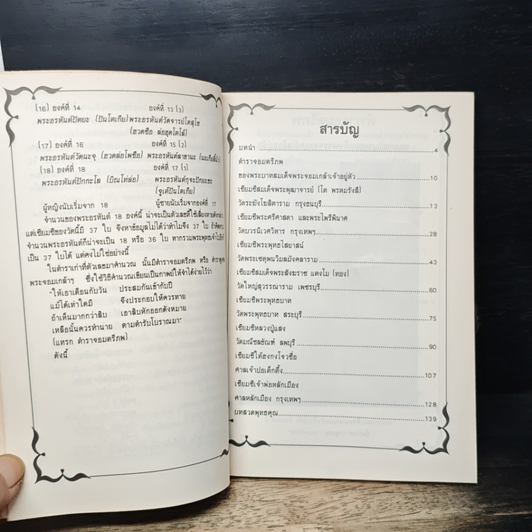 (16) องค์ที่ 14 องค์ที่ 13 (3)
พระอรหันต์ปัตยะ (ปันโตเกีย) พระอรหันต์วัดอาจารย์โตสุโข
(ฮวดซือ ล่อฮุดโตโส้)
(17) องค์ที่ 16 องค์ที่ 15 (2)
(18) องค์ที่ 18 องค์ที่ 17 (1)
ผู้หญิงนับเริ่มจาก 18 ผู้ชายนับเริ่มจากองค์ที่ 17
จำนวนของพระอรหันต์ 18 องค์นี้ น่าจะเป็นตัวเลขที่ใช้เสี่ยงทาย
แต่เซียมซีของวัดนี้มี 37 ใบ จึงหาข้อมูลไม่ได้ว่าทำไมจึงมี 37 ใบ ถ้าคิดตาม
จำนวนพระอรหันต์ก็น่าจะเป็น 18 หรือ 36 ใบ หากรวมพระพุทธเจ้าไปด้วย
เป็น 37 ใบได้ แต่คงไม่ใช่อย่างนี้
ในตำราเก่าที่ตัวเลขมาคำนวณ นั้นมีตำราจอมตรีภพ หรือ ตำรา
พระจอมเกล้าฯ ซึ่งใช้วิธีคำนวณเขียนเป็นกาพย์ให้จำได้ง่ายไว้ว่า
"ให้เอาเดือนกับวัน ประสมกันเข้ากับปี
แม้ได้เท่าใดมี จึงประกอบให้ควรหาย
ถ้าเห็นมากกว่าสิบ เอาสิบหักออกดังหมาย
เหลือนั้นควรทำนาย ตามตำรับโบราณมา"
(แทรก ตำราจอมตรีภพ)
ดังนี้
สารบัญ
บทนำ 4
ตำราจอมตรีภพ
ของพระบาทสมเด็จพระจอมเกล้าเจ้าอยู่หัว 10
เซียมซีสมเด็จพระพุฒาจารย์ (โต พรหมรังสี)
วัดระฆังโฆสิตาราม กรุงธนบุรี 21
เซียมซีพระศรีศาสดา และพระไพรีพินาศ
วัดบวรนิเวศวิหาร กรุงเทพฯ
เซียมซีพระพุทธไสยาสน์
วัดพระเชตุพนวิมลมังคลาราม 45
เซียมซีสมเด็จพระสังฆราช แตงโม (ทอง)
วัดใหญ่สุวรรณาราม เพชรบุรี 60
เซียมซีพระพุทธบาท
วัดพระพุทธบาท สระบุรี 75
เซียมซีหลวงปู่แสง
วัดมณีชลขัณฑ์ ลพบุรี 90
เซียมซีไต้ฮงกงโจวซือ
ศาลเจ้าปอเต็กตึ๊ง 107
เซียมซีเจ้าพ่อหลักเมือง
ศาลหลักเมือง กรุงเทพฯ 128
บทสวดพุทธคุณ 139